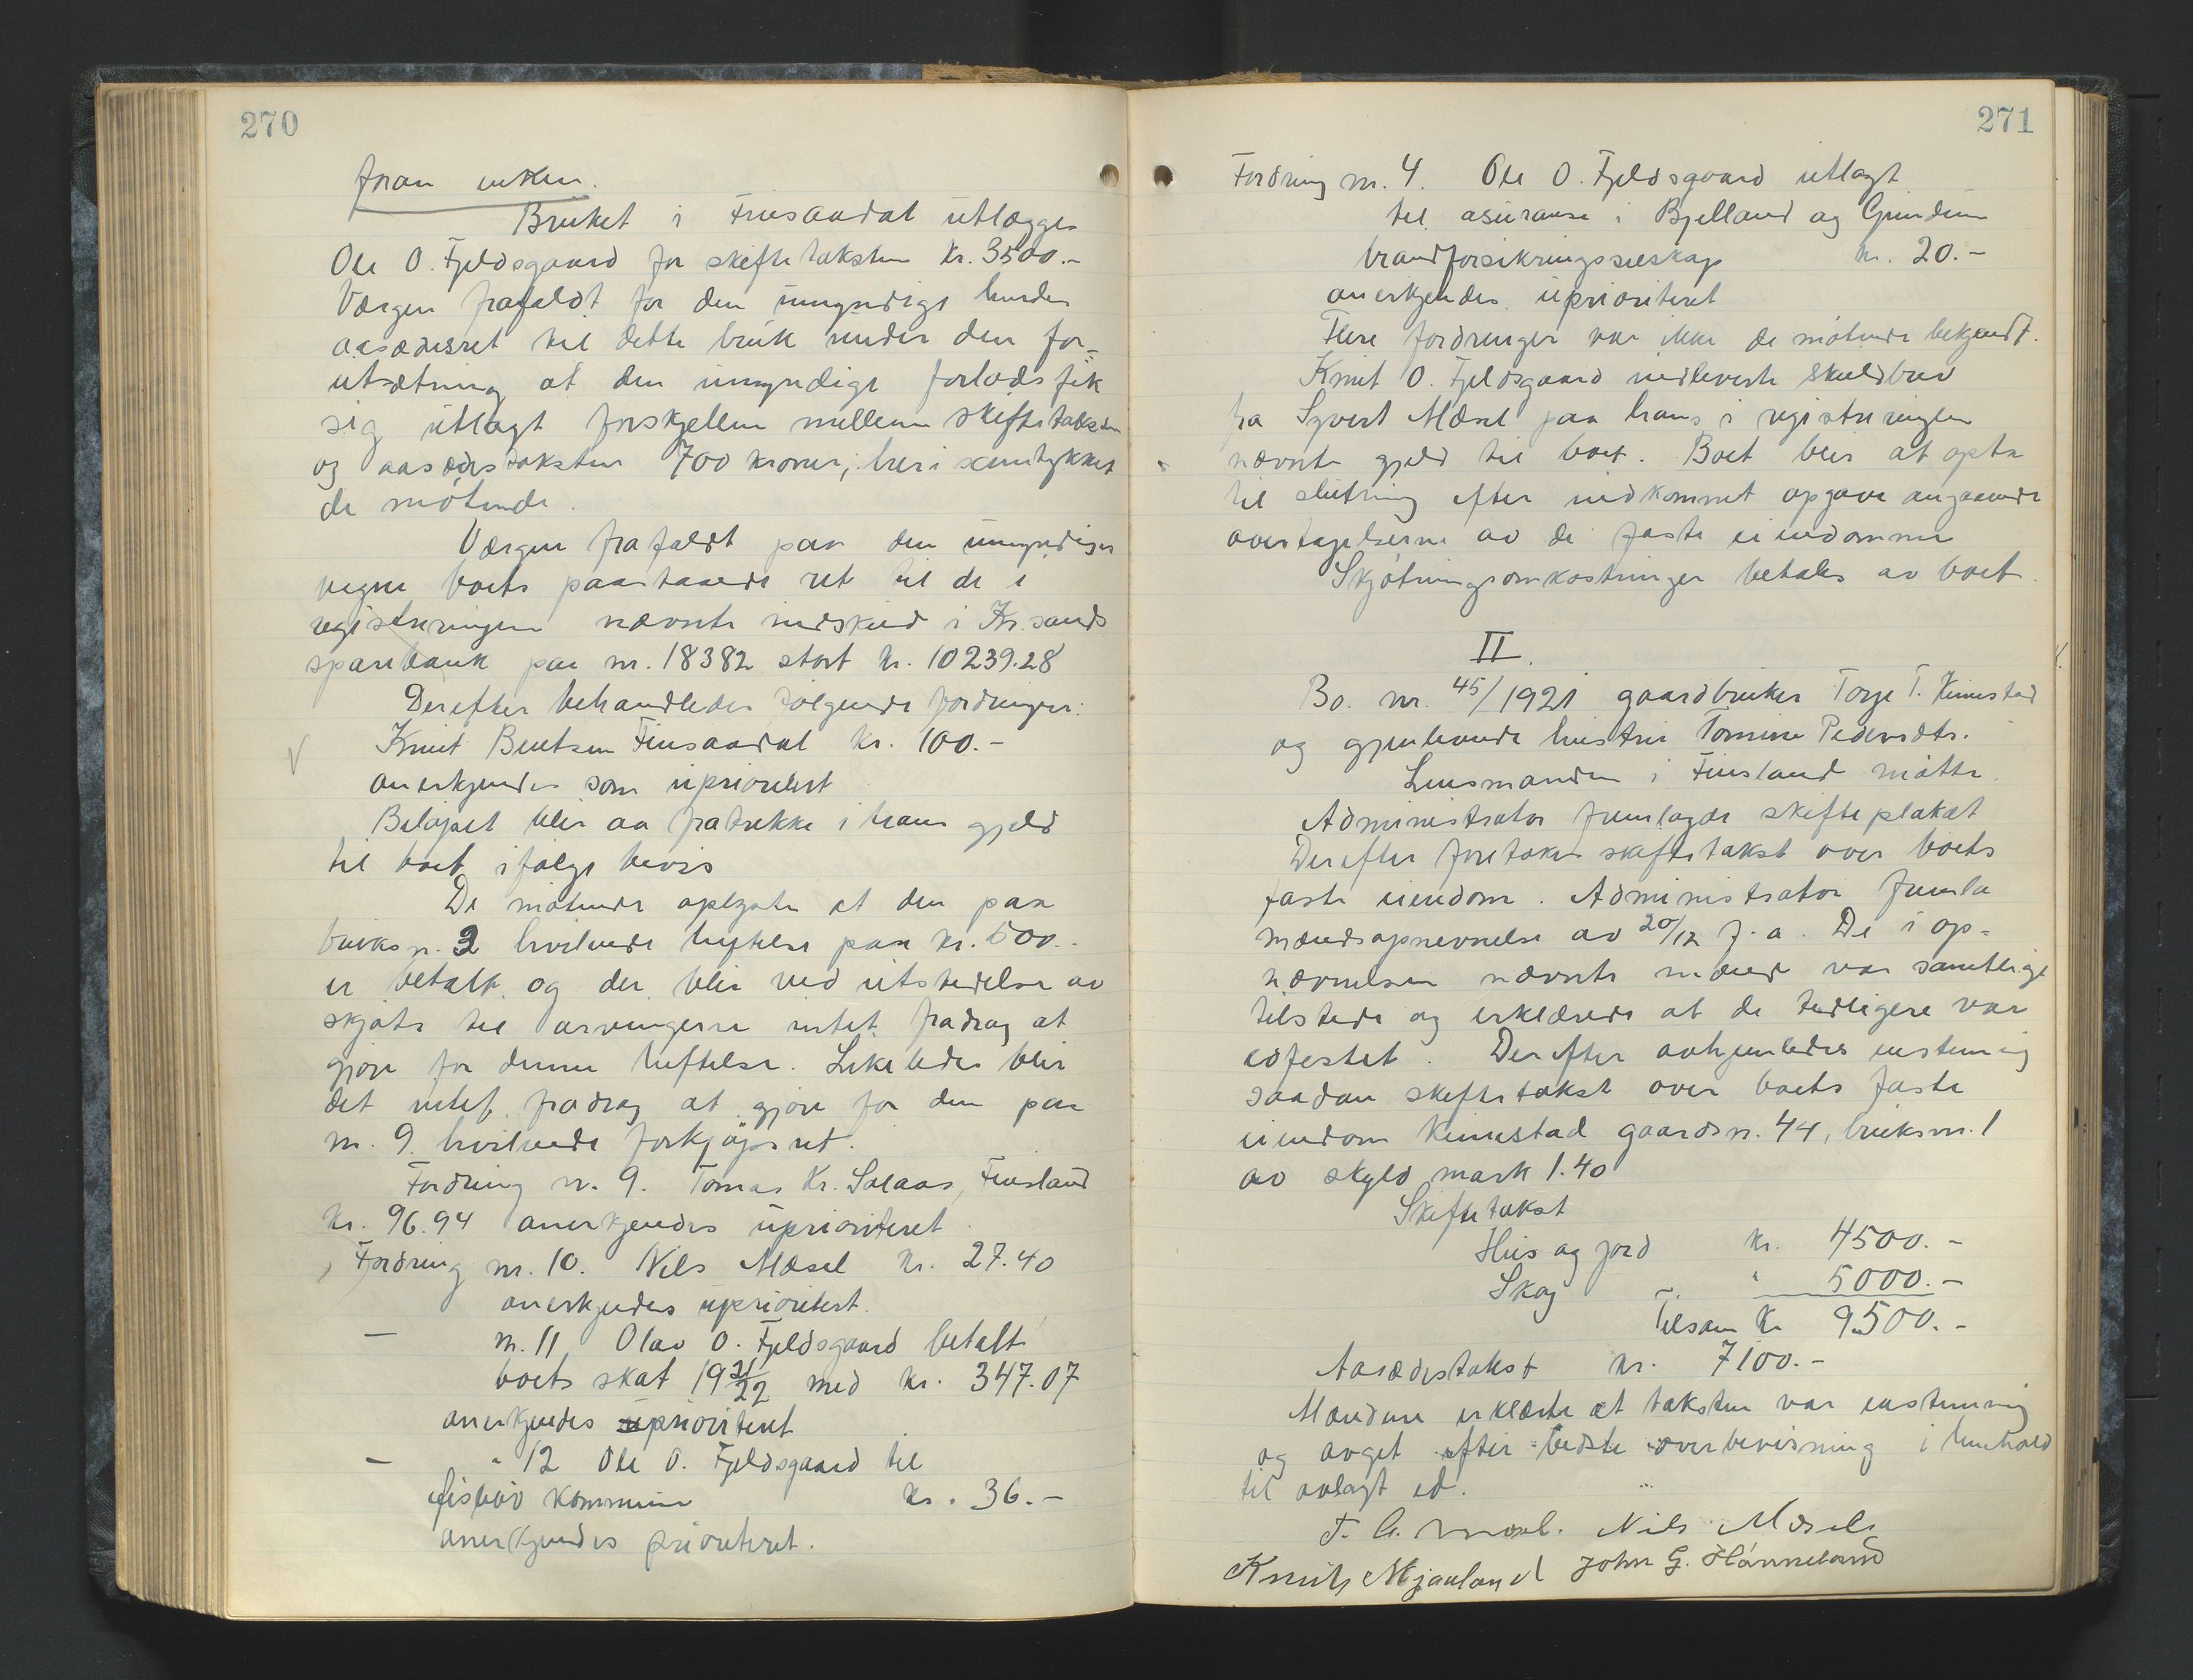 270
foran enken.
Bruket i Finsaadal utlægges
Ole O. Fjeldsgaard for skiftetaksten kr. 3500.-
Værgen frafaldt for den umyndige hendes
aasædesret til dette bruk under den for-
utsætning at den umyndige forlods fik
sig utlagt forskjellen mellem skiftetaksten
og aasædestaksten 700 kroner; heri samtykket
de møtende.
Værgen frafaldt paa den umyndiges
vegne boets paastaaede ret til de i
registreringen nævnte indskud i Kr.sands
sparebank paa nr. 18382 stort kr. 10239.28
Derefter behandledes følgende fordringer:
Knut Bentsen Finsaadal kr. 100.-
anerkjendes som uprioritert
Beløpet blir aa fratrække i hans gjeld
til boet ifølge bevis
De møtende oplyste at den paa
bruksn. 2 hvilende heftelse paa kr. 500.-
er betalt og der blir ved utstedelse av
skjøte til arvingerne intet fradrag at
gjøre for denne heftelse. Likeledes blir
det intet fradrag at gjøre for den paa
nr. 9 hvilende forkjøpsret.
Fordring nr. 9. Tomas Kr. Salaas, Finsland
kr. 96.94 anerkjendes uprioriteret.
Fordring nr. 10. Nils Mæsel kr. 27.40
anerkjendes uprioritert.
— nr. 11 Olav O. Fjeldsgaard betalt
boets skat 1921/22 med kr. 347.07
anerkjendes prioriteret
— " 12 Ole O. Fjeldsgaard til
kommune kr. 36.-
anerkjendes prioriteret.
271
Fordring nr. 4. Ole O. Fjeldsgaard utlagt
til asuranse i Bjelland og Grindum
brandforsikringsselskap kr. 20.-
anerkjendes uprioriteret
Flere fordringer var ikke de møtende bekjendt.
Knut O. Fjeldsgaard indleverte skuldbrev
fra Syvert Mæsel paa hans i registreringen
nævnte gjeld til boet. Boet blir at opta
til slutning efter indkommet opgave angaaende
overtagelserne av de faste eiendomme
Skjøtningsomkostninger betales av boet.
II.
Bo. nr. 45/1921 gaardbruker Torje T. Kimestad
og gjenlevende hustru Tomine Pedersdtr.
Lensmanden i Finsland møtte.
Administrator fremlagde skifteplakat
Derefter foretokes skiftetakst over boets
faste eiendom. Administrator fremla
mændsopnevnelse av 20/12 f.a. De i op-
nævnelsen nævnte mænd var samtlige
tilstede og erklærede at de tidligere var
edfestet. Derefter avhjemledes enstemmig
saadan skiftetakst over boets faste
eiendom Kimestad gaardsn. 44, bruksnr. 1
av skyld mark 1.40
Skiftetakst
Hus og jord kr. 4500.-
Skog " 5000.-
Tilsam kr 9500.-
Aasædestakst kr. 7100.-
Mændene erklærte at taksten var enstemmig
og avget efter bedste overbevisning i henhold
til avlagt ed.
Nils Mæsel
Knut Mjaaland John G. Hønneland